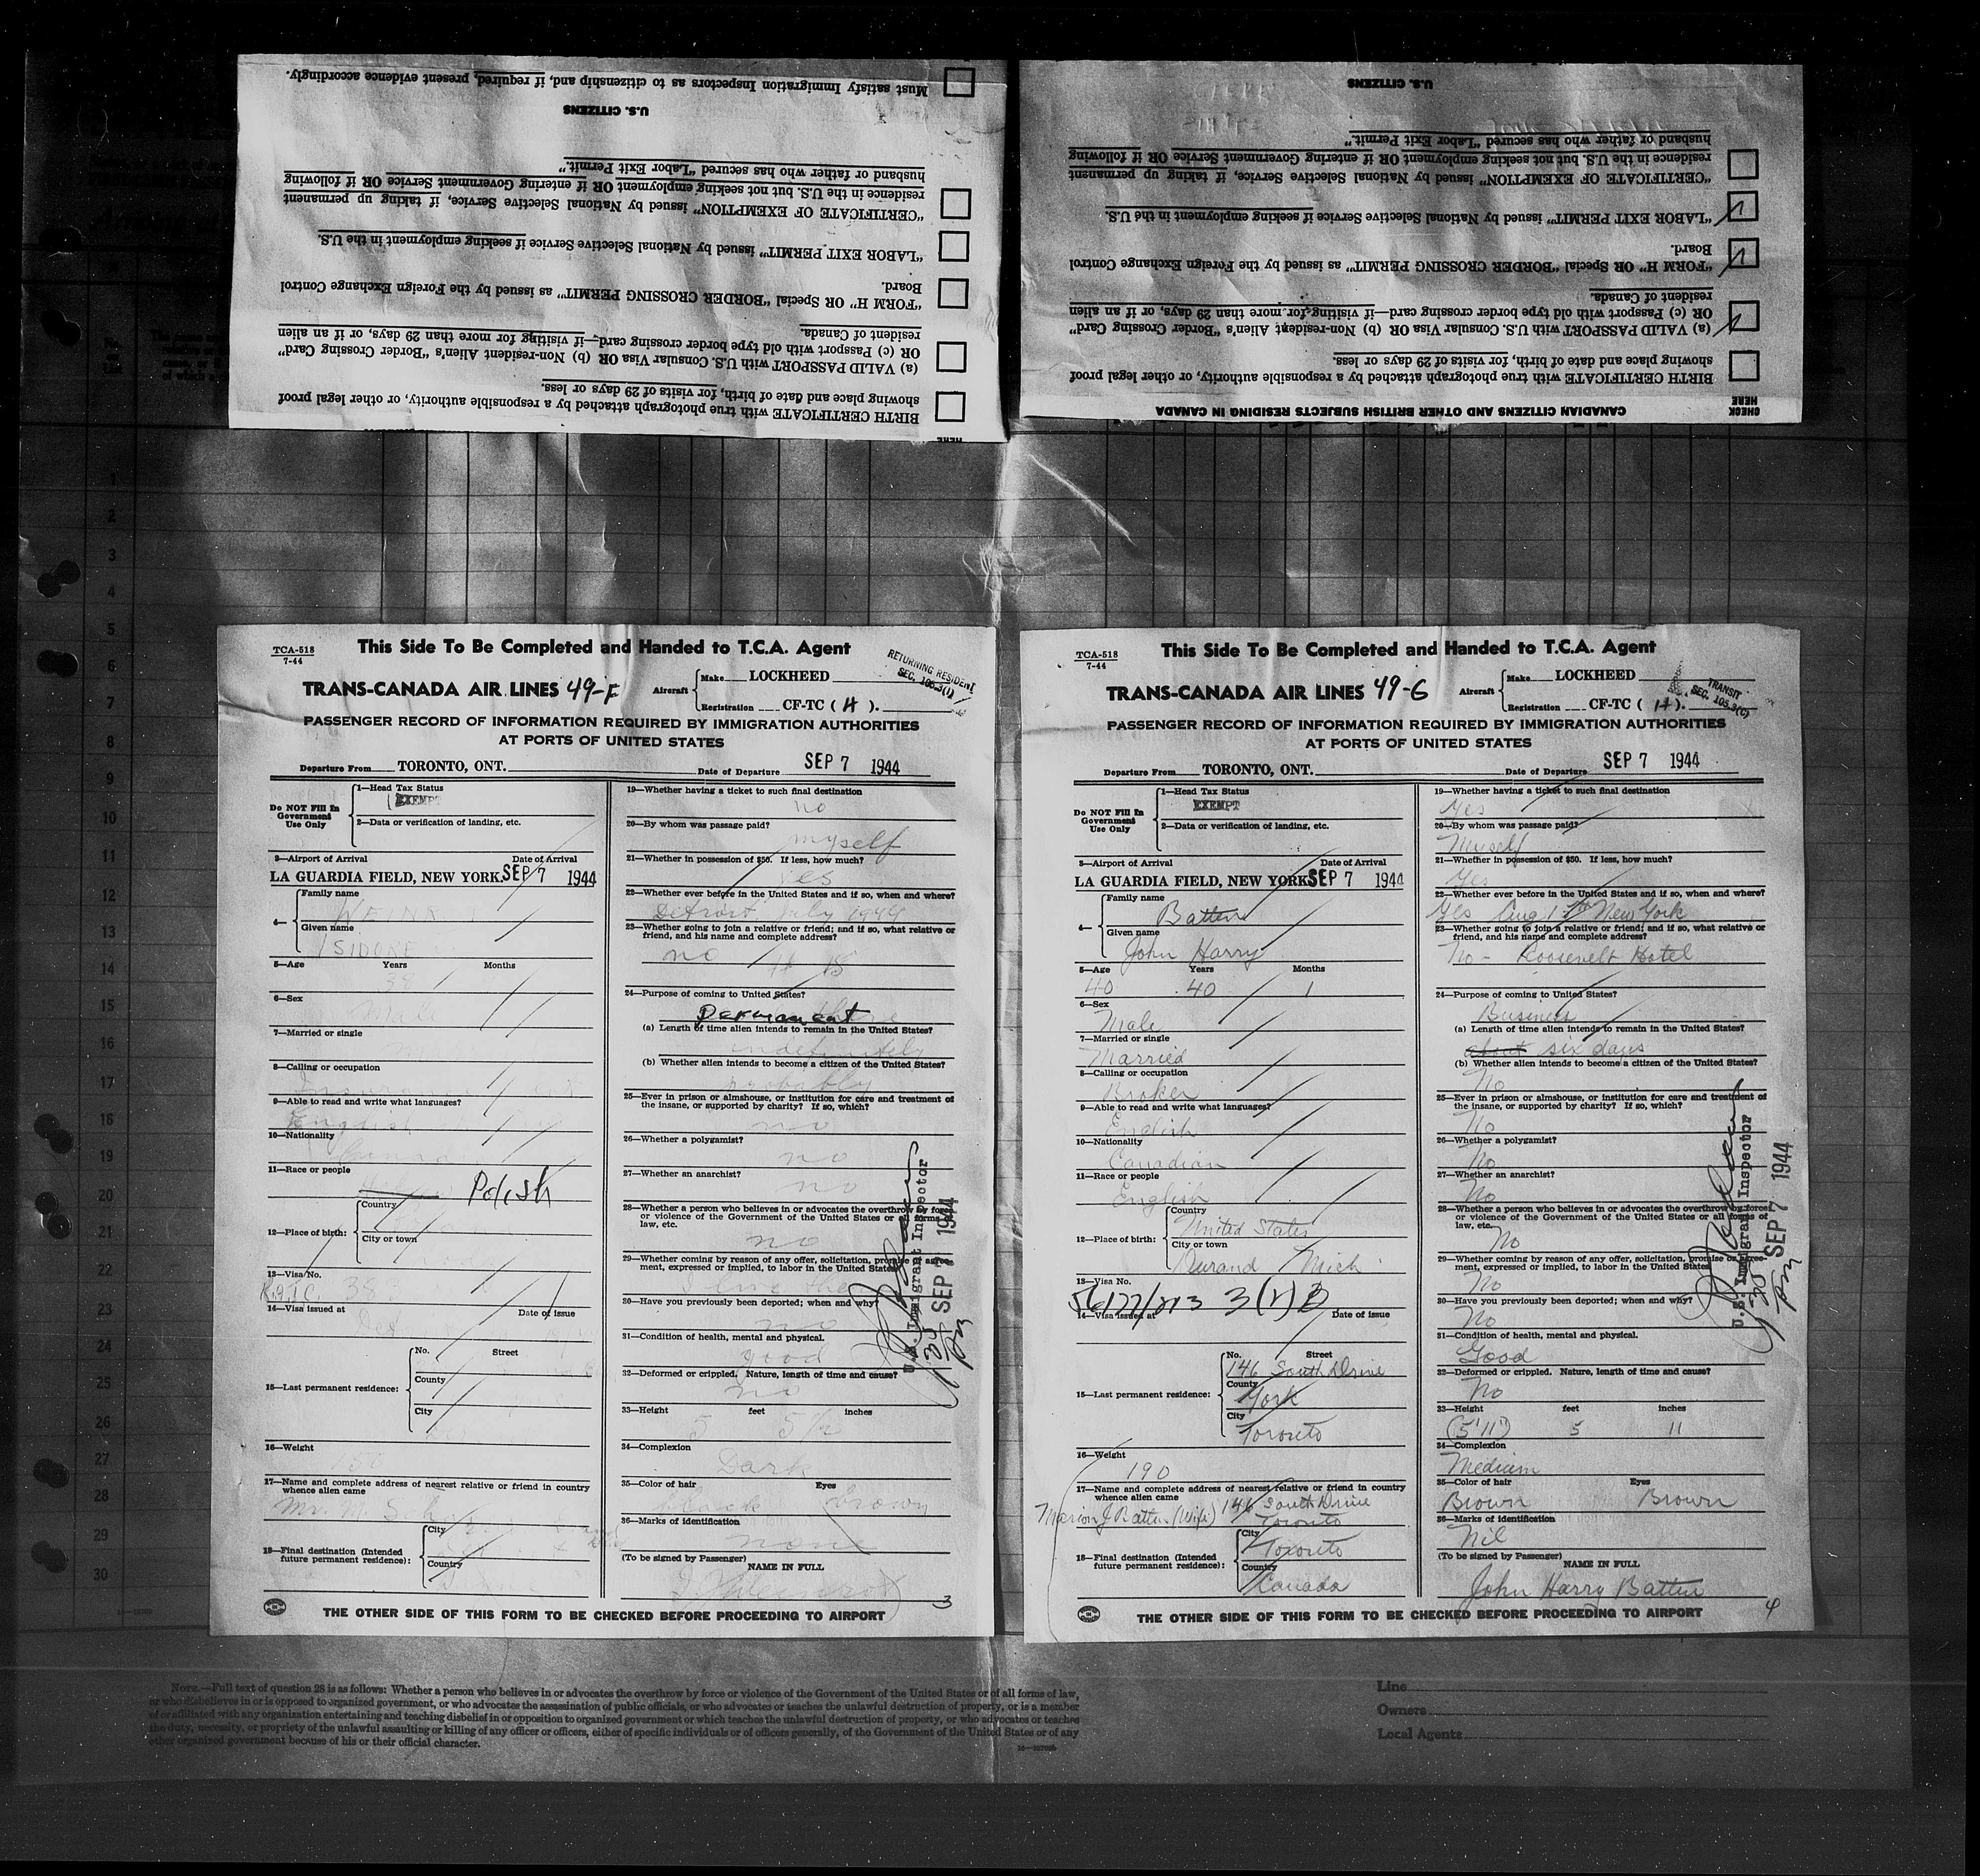 Must satisfy Immigration Inspectors as to citizenship and, if required, present evidence accordingly.
U.S. CITIZENS
husband or father who has secured "Labor Exit Permit."
residence in the U.S. but not seeking employment OR if entering Government Service OR if following
"CERTIFICATE OF EXEMPTION" issued by National Selective Service, if taking up permanent
"LABOR EXIT PERMIT" issued by National Selective Service if seeking employment in the U.S.
Board.
"FORM H" OR Special "BORDER CROSSING PERMIT" as issued by the Foreign Exchange Control
resident of Canada.
OR (c) Passport with old type border crossing card—if visiting for more than 29 days, or if an alien
(a) VALID PASSPORT with U.S. Consular Visa OR (b) Non-resident Alien's "Border Crossing Card"
showing place and date of birth, for visits of 29 days or less.
BIRTH CERTIFICATE with true photograph attached by a responsible authority, or other legal proof
HERE
U.S. CITIZENS
husband or father who has secured "Labor Exit Permit."
residence in the U.S. but not seeking employment OR if entering Government Service OR if following
"CERTIFICATE OF EXEMPTION" issued by National Selective Service, if taking up permanent
"LABOR EXIT PERMIT" issued by National Selective Service if seeking employment in the U.S.
Board.
"FORM H" OR Special "BORDER CROSSING PERMIT" as issued by the Foreign Exchange Control
resident of Canada.
OR (c) Passport with old type border crossing card—if visiting for more than 29 days, or if an alien
(a) VALID PASSPORT with U.S. Consular Visa OR (b) Non-resident Alien's "Border Crossing Card"
showing place and date of birth, for visits of 29 days or less.
BIRTH CERTIFICATE with true photograph attached by a responsible authority, or other legal proof
CANADIAN CITIZENS AND OTHER BRITISH SUBJECTS RESIDING IN CANADA
CHECK HERE
1
2
3
4
5
6
7
8
9
10
11
12
13
14
15
16
17
18
19
20
21
22
23
24
25
26
27
28
29
30
TCA-518
7-44
This Side To Be Completed and Handed to T.C.A. Agent
TRANS-CANADA AIR LINES 49-F
Aircraft
Make LOCKHEED
Registration CF-TC ( H ).
RETURNING RESIDENT
SEC. 105.3(1)
PASSENGER RECORD OF INFORMATION REQUIRED BY IMMIGRATION AUTHORITIES
AT PORTS OF UNITED STATES
Departure From TORONTO, ONT. Date of Departure SEP 7 1944
Do NOT Fill In
Government
Use Only
1—Head Tax Status
EXEMPT
2—Data or verification of landing, etc.
3—Airport of Arrival Date of Arrival
LA GUARDIA FIELD, NEW YORK. SEP 7 1944
4— Family name
Given name
ISIDORE
5—Age Years Months
6—Sex
Male
7—Married or single
8—Calling or occupation
9—Able to read and write what languages?
English
10—Nationality
11—Race or people
Polish
12—Place of birth: Country
City or town
13—Visa No.
14—Visa issued at Date of issue
15—Last permanent residence: No. Street
County
City
16—Weight
17—Name and complete address of nearest relative or friend in country
whence alien came
Mr.
18—Final destination (Intended
future permanent residence): City
Country
19—Whether having a ticket to such final destination
no
20—By whom was passage paid?
myself
21—Whether in possession of $50. If less, how much?
yes
22—Whether ever before in the United States and if so, when and where?
Detroit, July 1944
23—Whether going to join a relative or friend; and if so, what relative or
friend, and his name and complete address?
no
24—Purpose of coming to United States?
Permanent
(a) Length of time alien intends to remain in the United States?
indefinitely
(b) Whether alien intends to become a citizen of the United States?
probably
25—Ever in prison or almshouse, or institution for care and treatment of
the insane, or supported by charity? If so, which?
no
26—Whether a polygamist?
no
27—Whether an anarchist?
no
28—Whether a person who believes in or advocates the overthrow by force
or violence of the Government of the United States or all forms of
law, etc.
no
29—Whether coming by reason of any offer, solicitation, promise or agree-
ment, expressed or implied, to labor in the United States
30—Have you previously been deported; when and why?
no
31—Condition of health, mental and physical.
good
32—Deformed or crippled. Nature, length of time and cause?
no
33—Height feet inches
5 5 1/2
34—Complexion
Dark
35—Color of hair Eyes
black brown
36—Marks of identification
none
(To be signed by Passenger) NAME IN FULL
U.S. Immigrant Inspector
SEP 7 1944
3
THE OTHER SIDE OF THIS FORM TO BE CHECKED BEFORE PROCEEDING TO AIRPORT
TCA-518
7-44
This Side To Be Completed and Handed to T.C.A. Agent
TRANS-CANADA AIR LINES 49-G
Aircraft
Make LOCKHEED
Registration CF-TC ( H ).
TRANSIT
SEC. 105.3(C)
PASSENGER RECORD OF INFORMATION REQUIRED BY IMMIGRATION AUTHORITIES
AT PORTS OF UNITED STATES
Departure From TORONTO, ONT. Date of Departure SEP 7 1944
Do NOT Fill In
Government
Use Only
1—Head Tax Status
EXEMPT
2—Data or verification of landing, etc.
3—Airport of Arrival Date of Arrival
LA GUARDIA FIELD, NEW YORK SEP 7 1944
4— Family name
Batten
Given name
John Harry
5—Age Years Months
40 40 1
6—Sex
Male
7—Married or single
Married
8—Calling or occupation
Broker
9—Able to read and write what languages?
English
10—Nationality
Canadian
11—Race or people
English
12—Place of birth: Country
United States
City or town
Durand Mich
13—Visa No.
56177/273 3(1)B
14—Visa issued at Date of issue
15—Last permanent residence: No. Street
146 South Drive
County
York
City
Toronto
16—Weight
190
17—Name and complete address of nearest relative or friend in country
whence alien came
Marion J Batten (Wife) 146 South Drive
Toronto
18—Final destination (Intended
future permanent residence): City
Toronto
Country
Canada
19—Whether having a ticket to such final destination
Yes
20—By whom was passage paid?
Myself
21—Whether in possession of $50. If less, how much?
Yes
22—Whether ever before in the United States and if so, when and where?
Yes Aug New York
23—Whether going to join a relative or friend; and if so, what relative or
friend, and his name and complete address?
No - Roosevelt Hotel
24—Purpose of coming to United States?
Business
(a) Length of time alien intends to remain in the United States?
about six days
(b) Whether alien intends to become a citizen of the United States?
No
25—Ever in prison or almshouse, or institution for care and treatment of
the insane, or supported by charity? If so, which?
No
26—Whether a polygamist?
No
27—Whether an anarchist?
No
28—Whether a person who believes in or advocates the overthrow by force
or violence of the Government of the United States or all forms of
law, etc.
No
29—Whether coming by reason of any offer, solicitation, promise or agree-
ment, expressed or implied, to labor in the United States
No
30—Have you previously been deported; when and why?
No
31—Condition of health, mental and physical.
Good
32—Deformed or crippled. Nature, length of time and cause?
No
33—Height feet inches
(5'11") 5 11
34—Complexion
Medium
35—Color of hair Eyes
Brown Brown
36—Marks of identification
Nil
(To be signed by Passenger) NAME IN FULL
John Harry Batten
U.S. Immigrant Inspector
SEP 7 1944
4
THE OTHER SIDE OF THIS FORM TO BE CHECKED BEFORE PROCEEDING TO AIRPORT
NOTE.—Full text of question 28 is as follows: Whether a person who believes in or advocates the overthrow by force or violence of the Government of the United States or of all forms of law,
or who disbelieves in or is opposed to organized government, or who advocates the assassination of public officials, or who advocates or teaches the unlawful destruction of property, or is a member
of or affiliated with any organization entertaining and teaching disbelief in or opposition to organized government or which teaches the unlawful destruction of property, or who advocates or teaches
the duty, necessity, or propriety of the unlawful assaulting or killing of any officer or officers, either of specific individuals or of officers generally, of the Government of the United States or of any
other organized government because of his or their official character.
Line
Owners
Local Agents